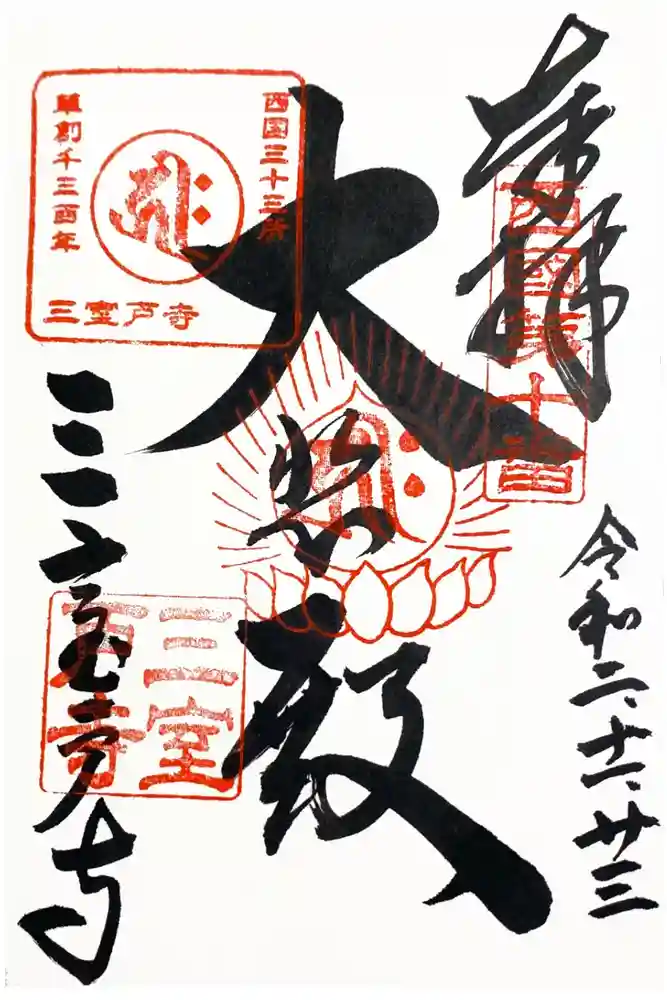 奉拝
西國第十番
令和二、十一、廿三
西国三十三所
草創千三百年
三室戸寺
大悲殿
三室戸寺
三室戸寺